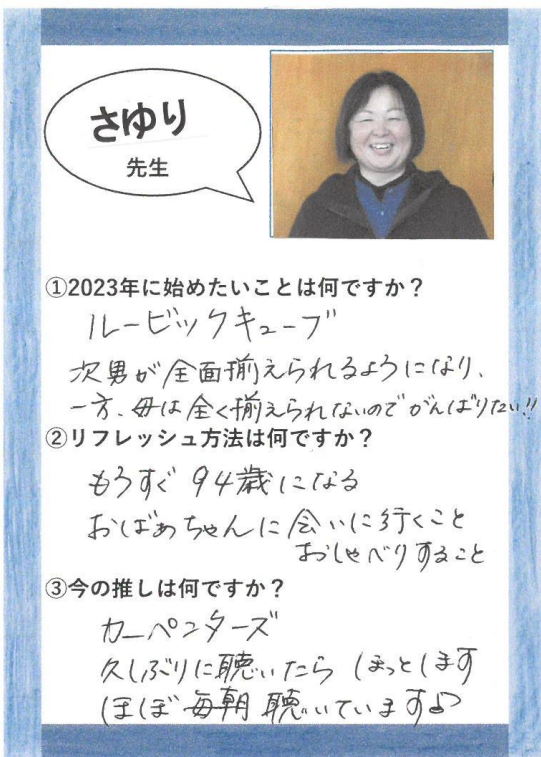 さゆり
先生
①2023年に始めたいことは何ですか？
ルービックキューブ
次男が全面揃えられるようになり、
一方、母は全く揃えられないのでがんばりたい!!
②リフレッシュ方法は何ですか？
もうすぐ94歳になる
おばあちゃんに会いに行くこと
おしゃべりすること
③今の推しは何ですか？
カーペンターズ
久しぶりに聴いたらほっとします
ほぼ毎朝聴いています♪